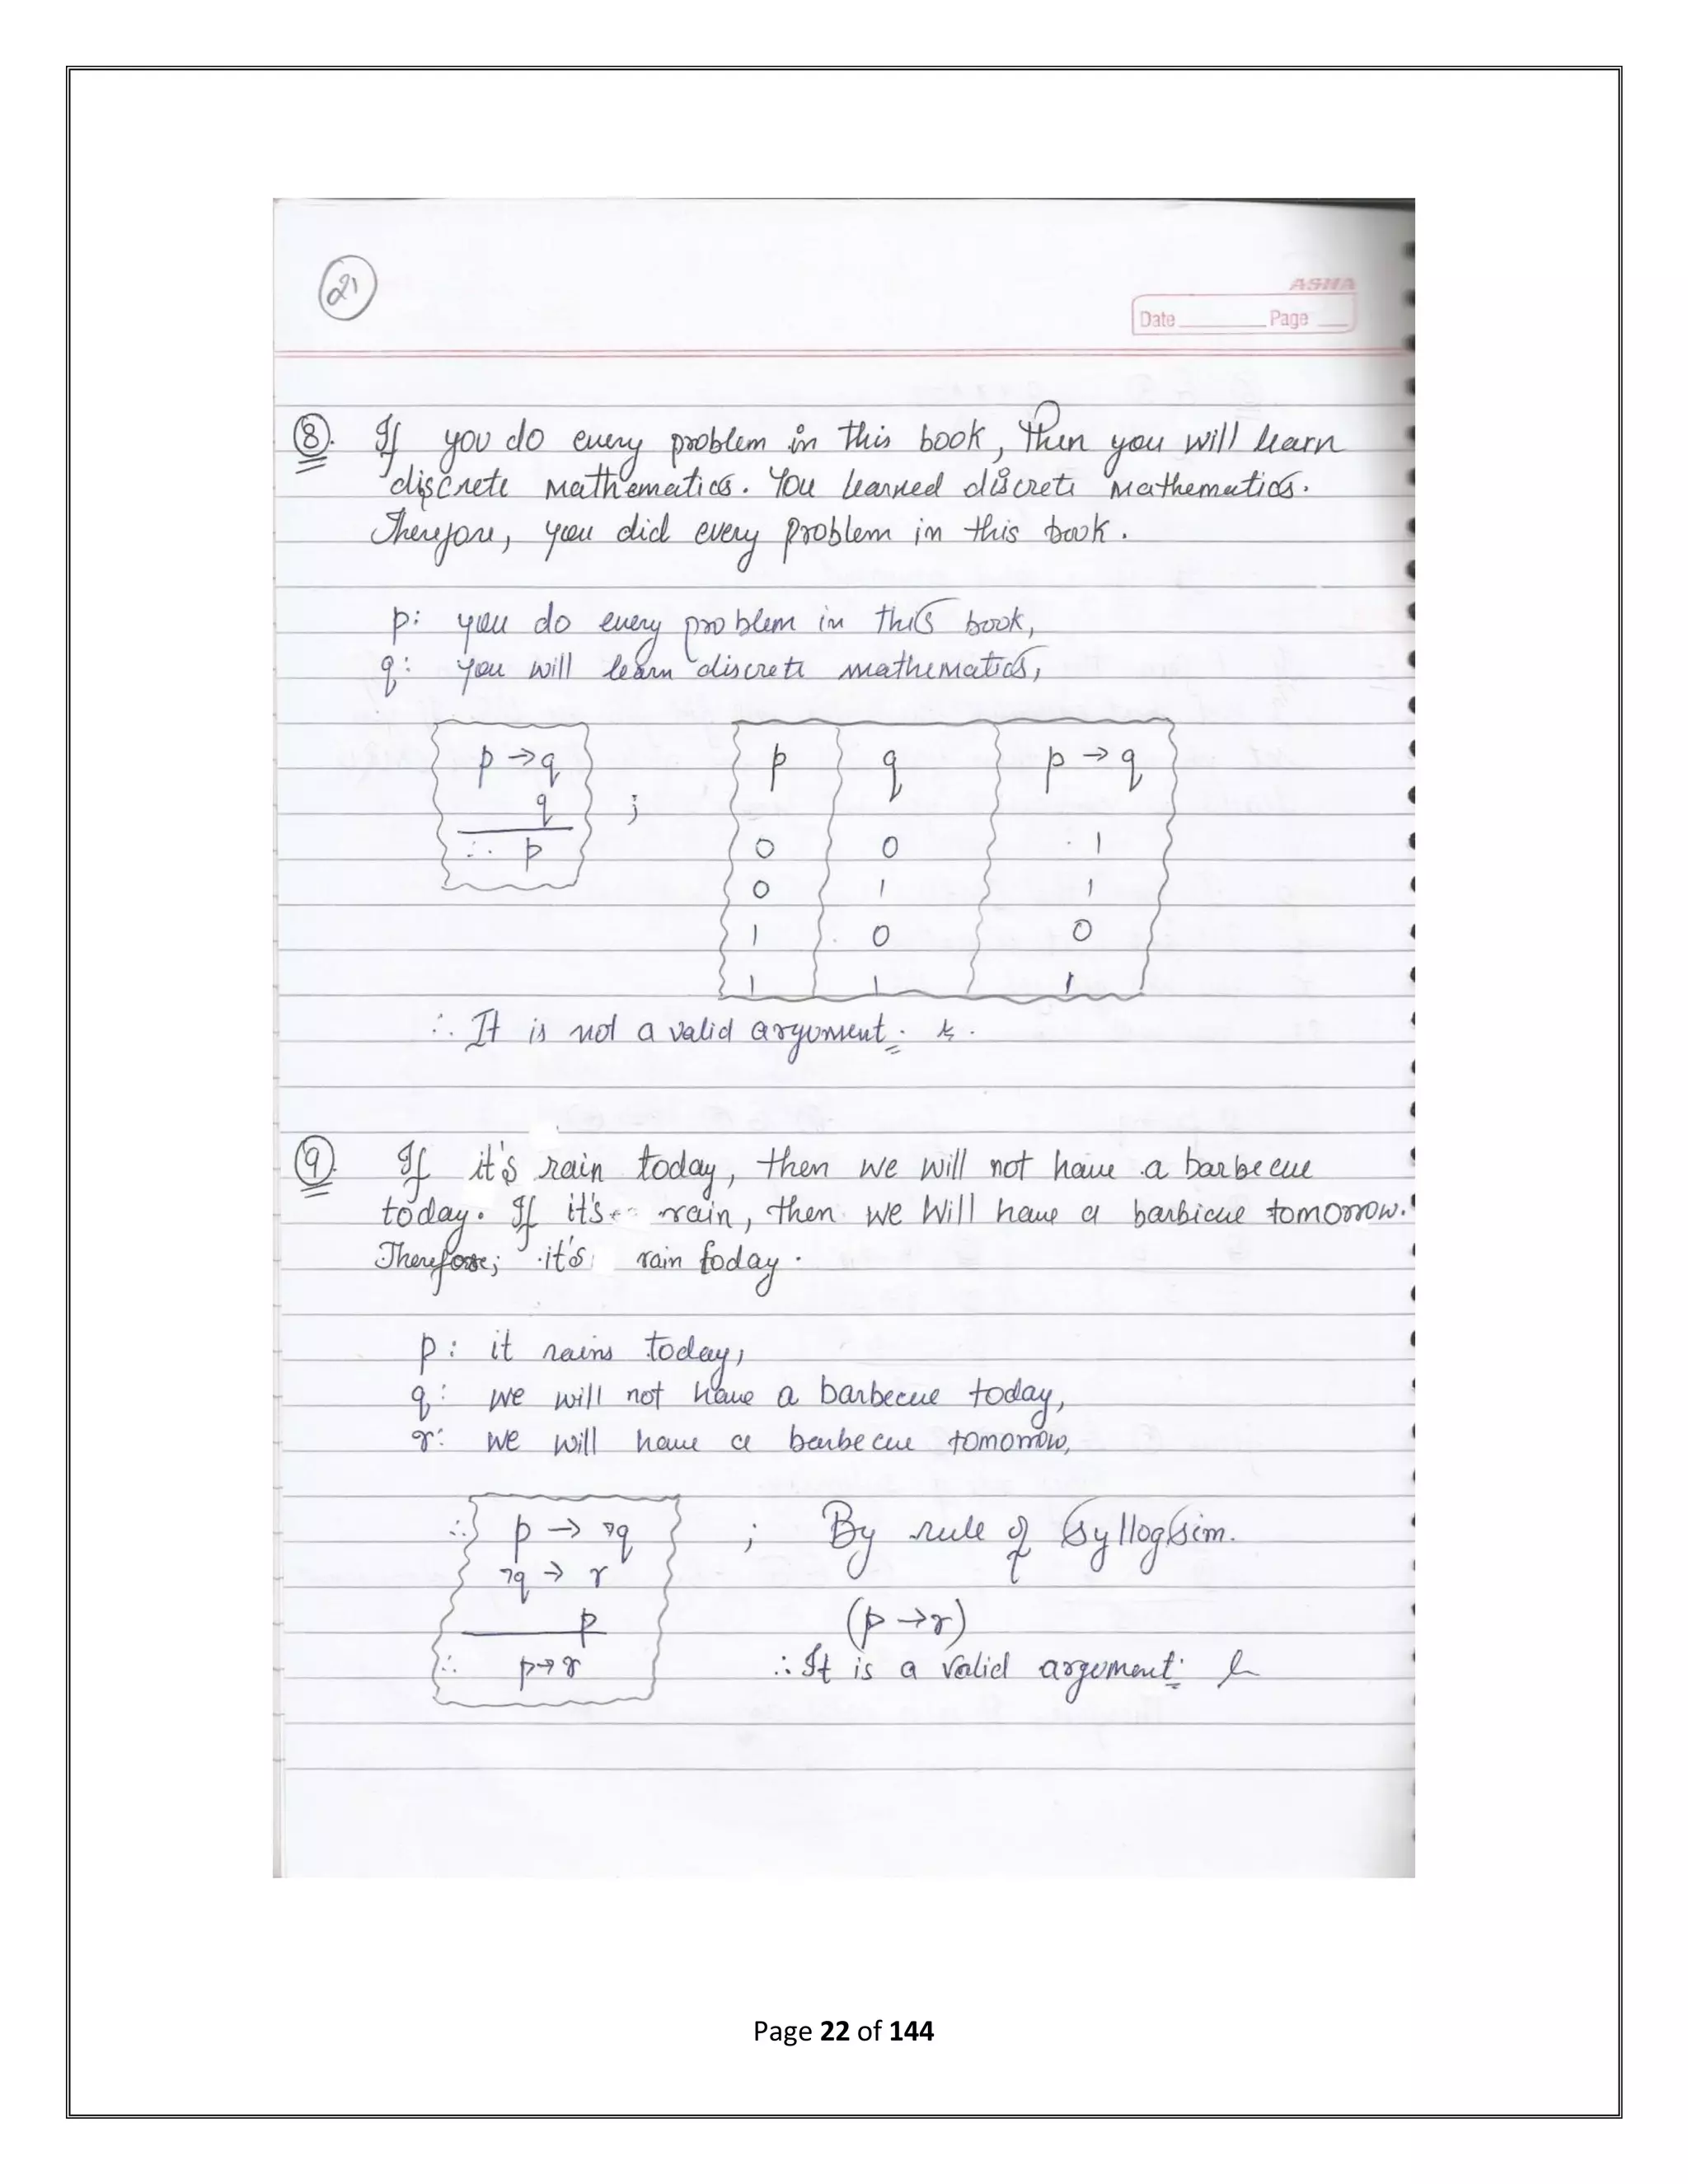 21
ASHA
Date Page
8. If you do every problem in this book, Then you will learn
discrete mathematics. You learned discrete mathematics.
Therefore, you did every problem in this book.
p: you do every problem in this book,
q: you will learn discrete mathematics,
p → q
q
∴ p
;
p q p → q
0 0 1
0 1 1
1 0 0
1 1 1
∴ It is not a valid argument.
9. If it's rain today, then we will not have a barbecue
today. If it's rain, then we will have a barbicue tomorrow.
Therefore; it's rain today.
p: it rains today,
q: we will not have a barbecue today,
r: we will have a barbecue tomorrow,
∴ p → ¬q
¬q → r
p
∴ p → r
; By rule of syllogsim.
(p → r)
∴ It is a valid argument.
Page 22 of 144